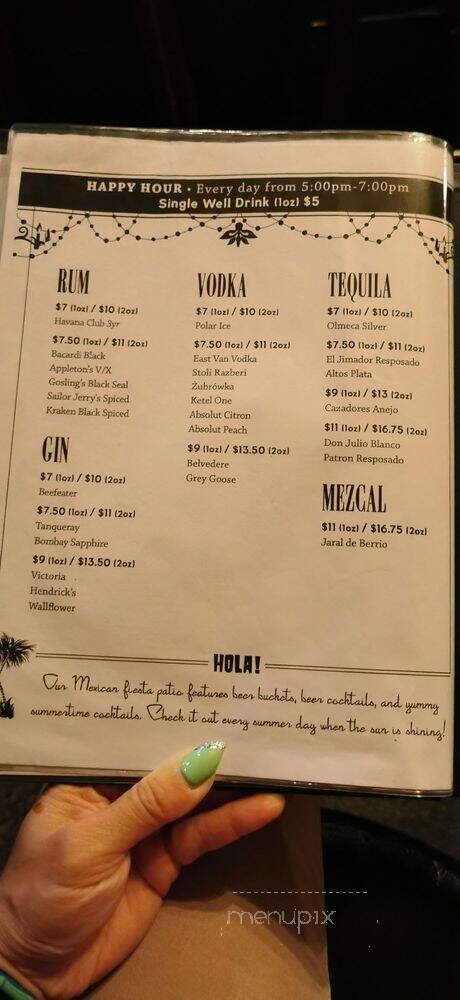 HAPPY HOUR • Every day from 5:00pm-7:00pm
Single Well Drink (1oz) $5
RUM
$7 (1oz) / $10 (2oz)
Havana Club 3yr
$7.50 (1oz) / $11 (2oz)
Bacardi Black
Appleton's V/X
Gosling's Black Seal
Sailor Jerry's Spiced
Kraken Black Spiced
GIN
$7 (1oz) / $10 (2oz)
Beefeater
$7.50 (1oz) / $11 (2oz)
Tanqueray
Bombay Sapphire
$9 (1oz) / $13.50 (2oz)
Victoria
Hendrick's
Wallflower
VODKA
$7 (1oz) / $10 (2oz)
Polar Ice
$7.50 (1oz) / $11 (2oz)
East Van Vodka
Stoli Razberi
Żubrówka
Ketel One
Absolut Citron
Absolut Peach
$9 (1oz) / $13.50 (2oz)
Belvedere
Grey Goose
TEQUILA
$7 (1oz) / $10 (2oz)
Olmeca Silver
$7.50 (1oz) / $11 (2oz)
El Jimador Resposado
Altos Plata
$9 (1oz) / $13 (2oz)
Cazadores Anejo
$11 (1oz) / $16.75 (2oz)
Don Julio Blanco
Patron Resposado
MEZCAL
$11 (1oz) / $16.75 (2oz)
Jaral de Berrio
HOLA!
Our Mexican fiesta patio features beer buckets, beer cocktails, and yummy
summertime cocktails. Check it out every summer day when the sun is shining!
menupix